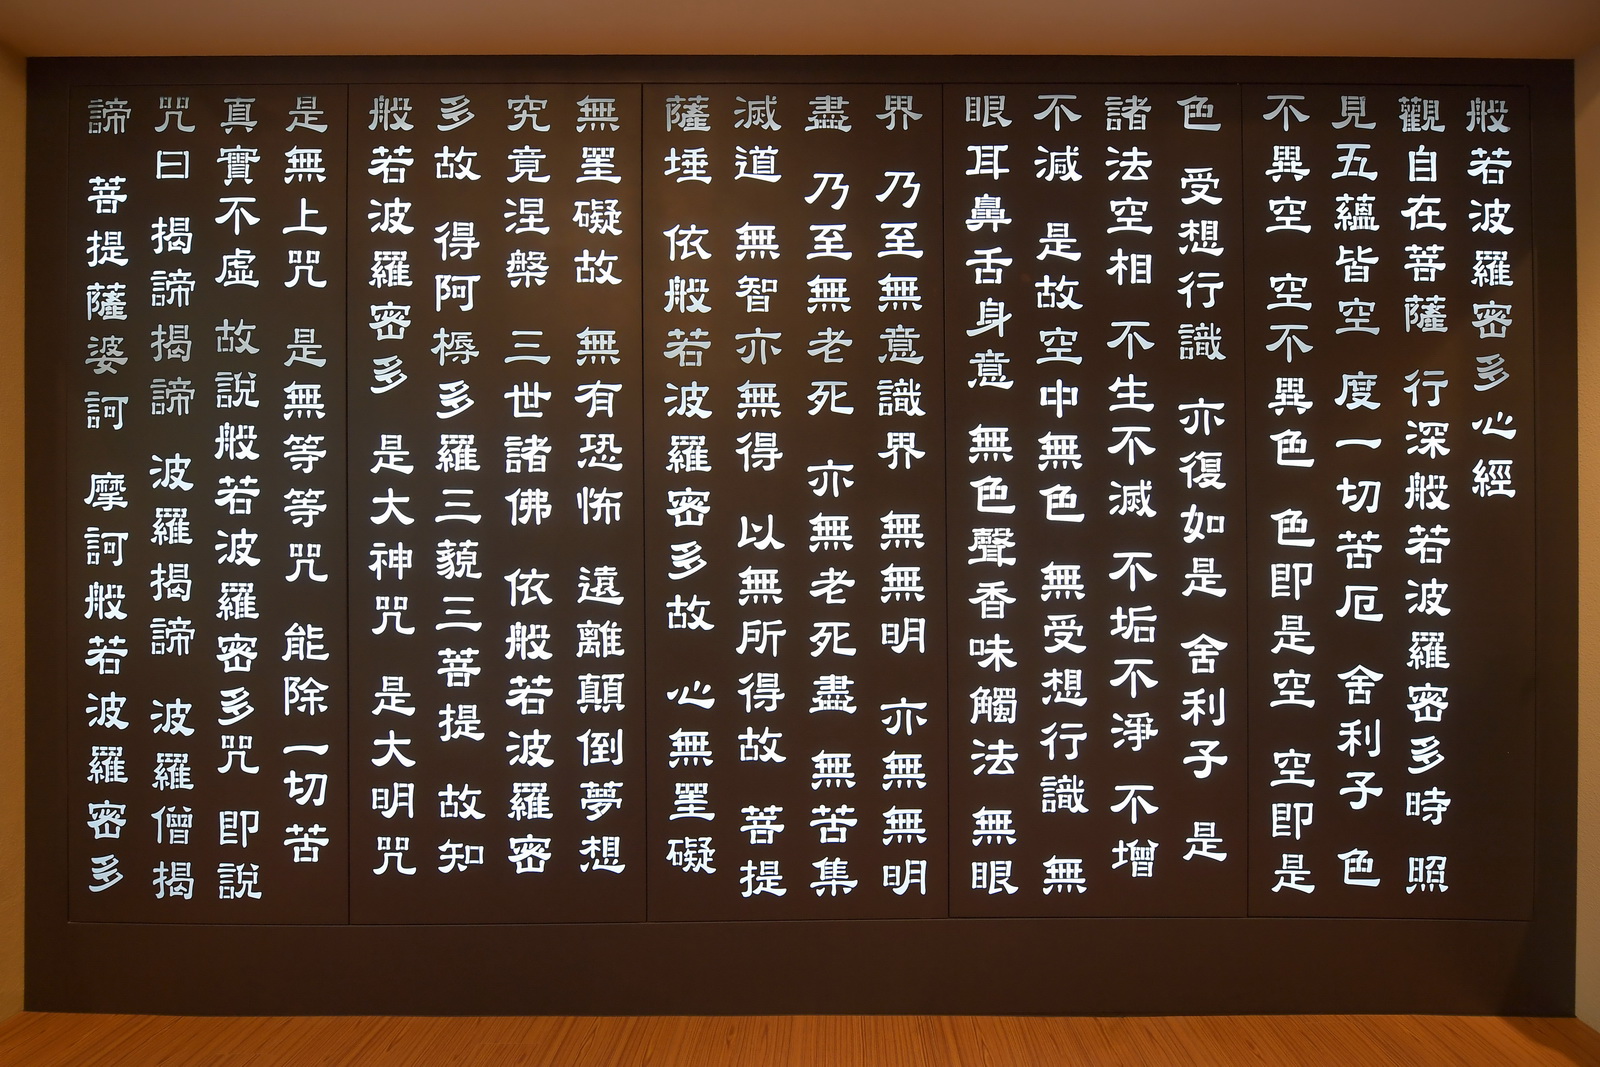 般若波羅密多心經
觀自在菩薩 行深般若波羅密多時 照
見五蘊皆空 度一切苦厄 舍利子 色
不異空 空不異色 色即是空 空即是
色 受想行識 亦復如是 舍利子 是
諸法空相 不生不滅 不垢不淨 不增
不減 是故空中無色 無受想行識 無
眼耳鼻舌身意 無色聲香味觸法 無眼
界 乃至無意識界 無無明 亦無無明
盡 乃至無老死 亦無老死盡 無苦集
滅道 無智亦無得 以無所得故 菩提
薩埵 依般若波羅密多故 心無罣礙
無罣礙故 無有恐怖 遠離顛倒夢想
究竟涅槃 三世諸佛 依般若波羅密
多故 得阿耨多羅三藐三菩提 故知
般若波羅密多 是大神咒 是大明咒
是無上咒 是無等等咒 能除一切苦
真實不虛 故說般若波羅密多咒 即說
咒曰 揭諦揭諦 波羅揭諦 波羅僧揭
諦 菩提薩婆訶 摩訶般若波羅密多